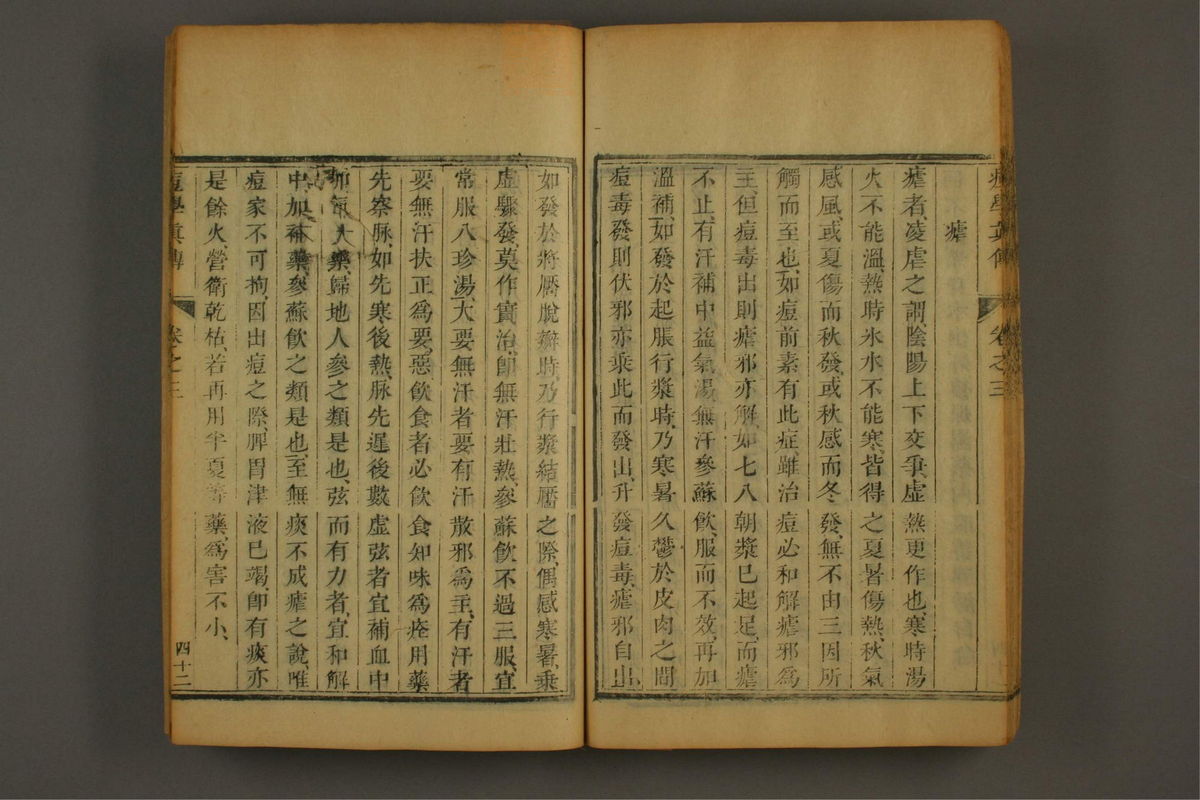 痘學眞傳 卷之三
瘧
瘧者、凌虐之謂、陰陽上下交爭、虛熱更作也、寒時湯
火不能溫、熱時氷水不能寒、皆得之夏暑傷熱、秋氣
感風、或夏傷而秋發、或秋感而冬發、無不由三因所
觸而至也、如痘前素有此症、雖治痘必和解瘧邪爲
主、但痘毒出則瘧邪亦解、如七八朝漿已起足、而瘧
不止、有汗補中益氣湯、無汗參蘇飲、服而不效、再加
溫補、如發於起脹行漿時、乃寒暑久鬱於皮肉之間
痘毒發則伏邪亦乘此而發出、升發痘毒、瘧邪自出、
如發於將靨脫瓣時、乃行漿結靨之際、偶感寒暑、乘
虛驟發、莫作實治、卽無汗壯熱、參蘇飲不過三服、宜
常服八珍湯、大要無汗者要有汗、散邪爲主、有汗者
要無汗、扶正爲要、惡飲食者必飲食知味爲痊、用藥
先察脉、如先寒後熱、脉先遲後數、虛弦者宜補血中
加氣藥、歸地人參之類是也、弦而有力者、宜和解
中加補藥、參蘇飲之類是也、至無痰不成瘧之說、惟
痘家不可拘、因出痘之際、脾胃津液已竭、卽有痰亦
是餘火、營衛乾枯、若再用半夏等藥、爲害不小、
痘學眞傳 卷之三 四十二